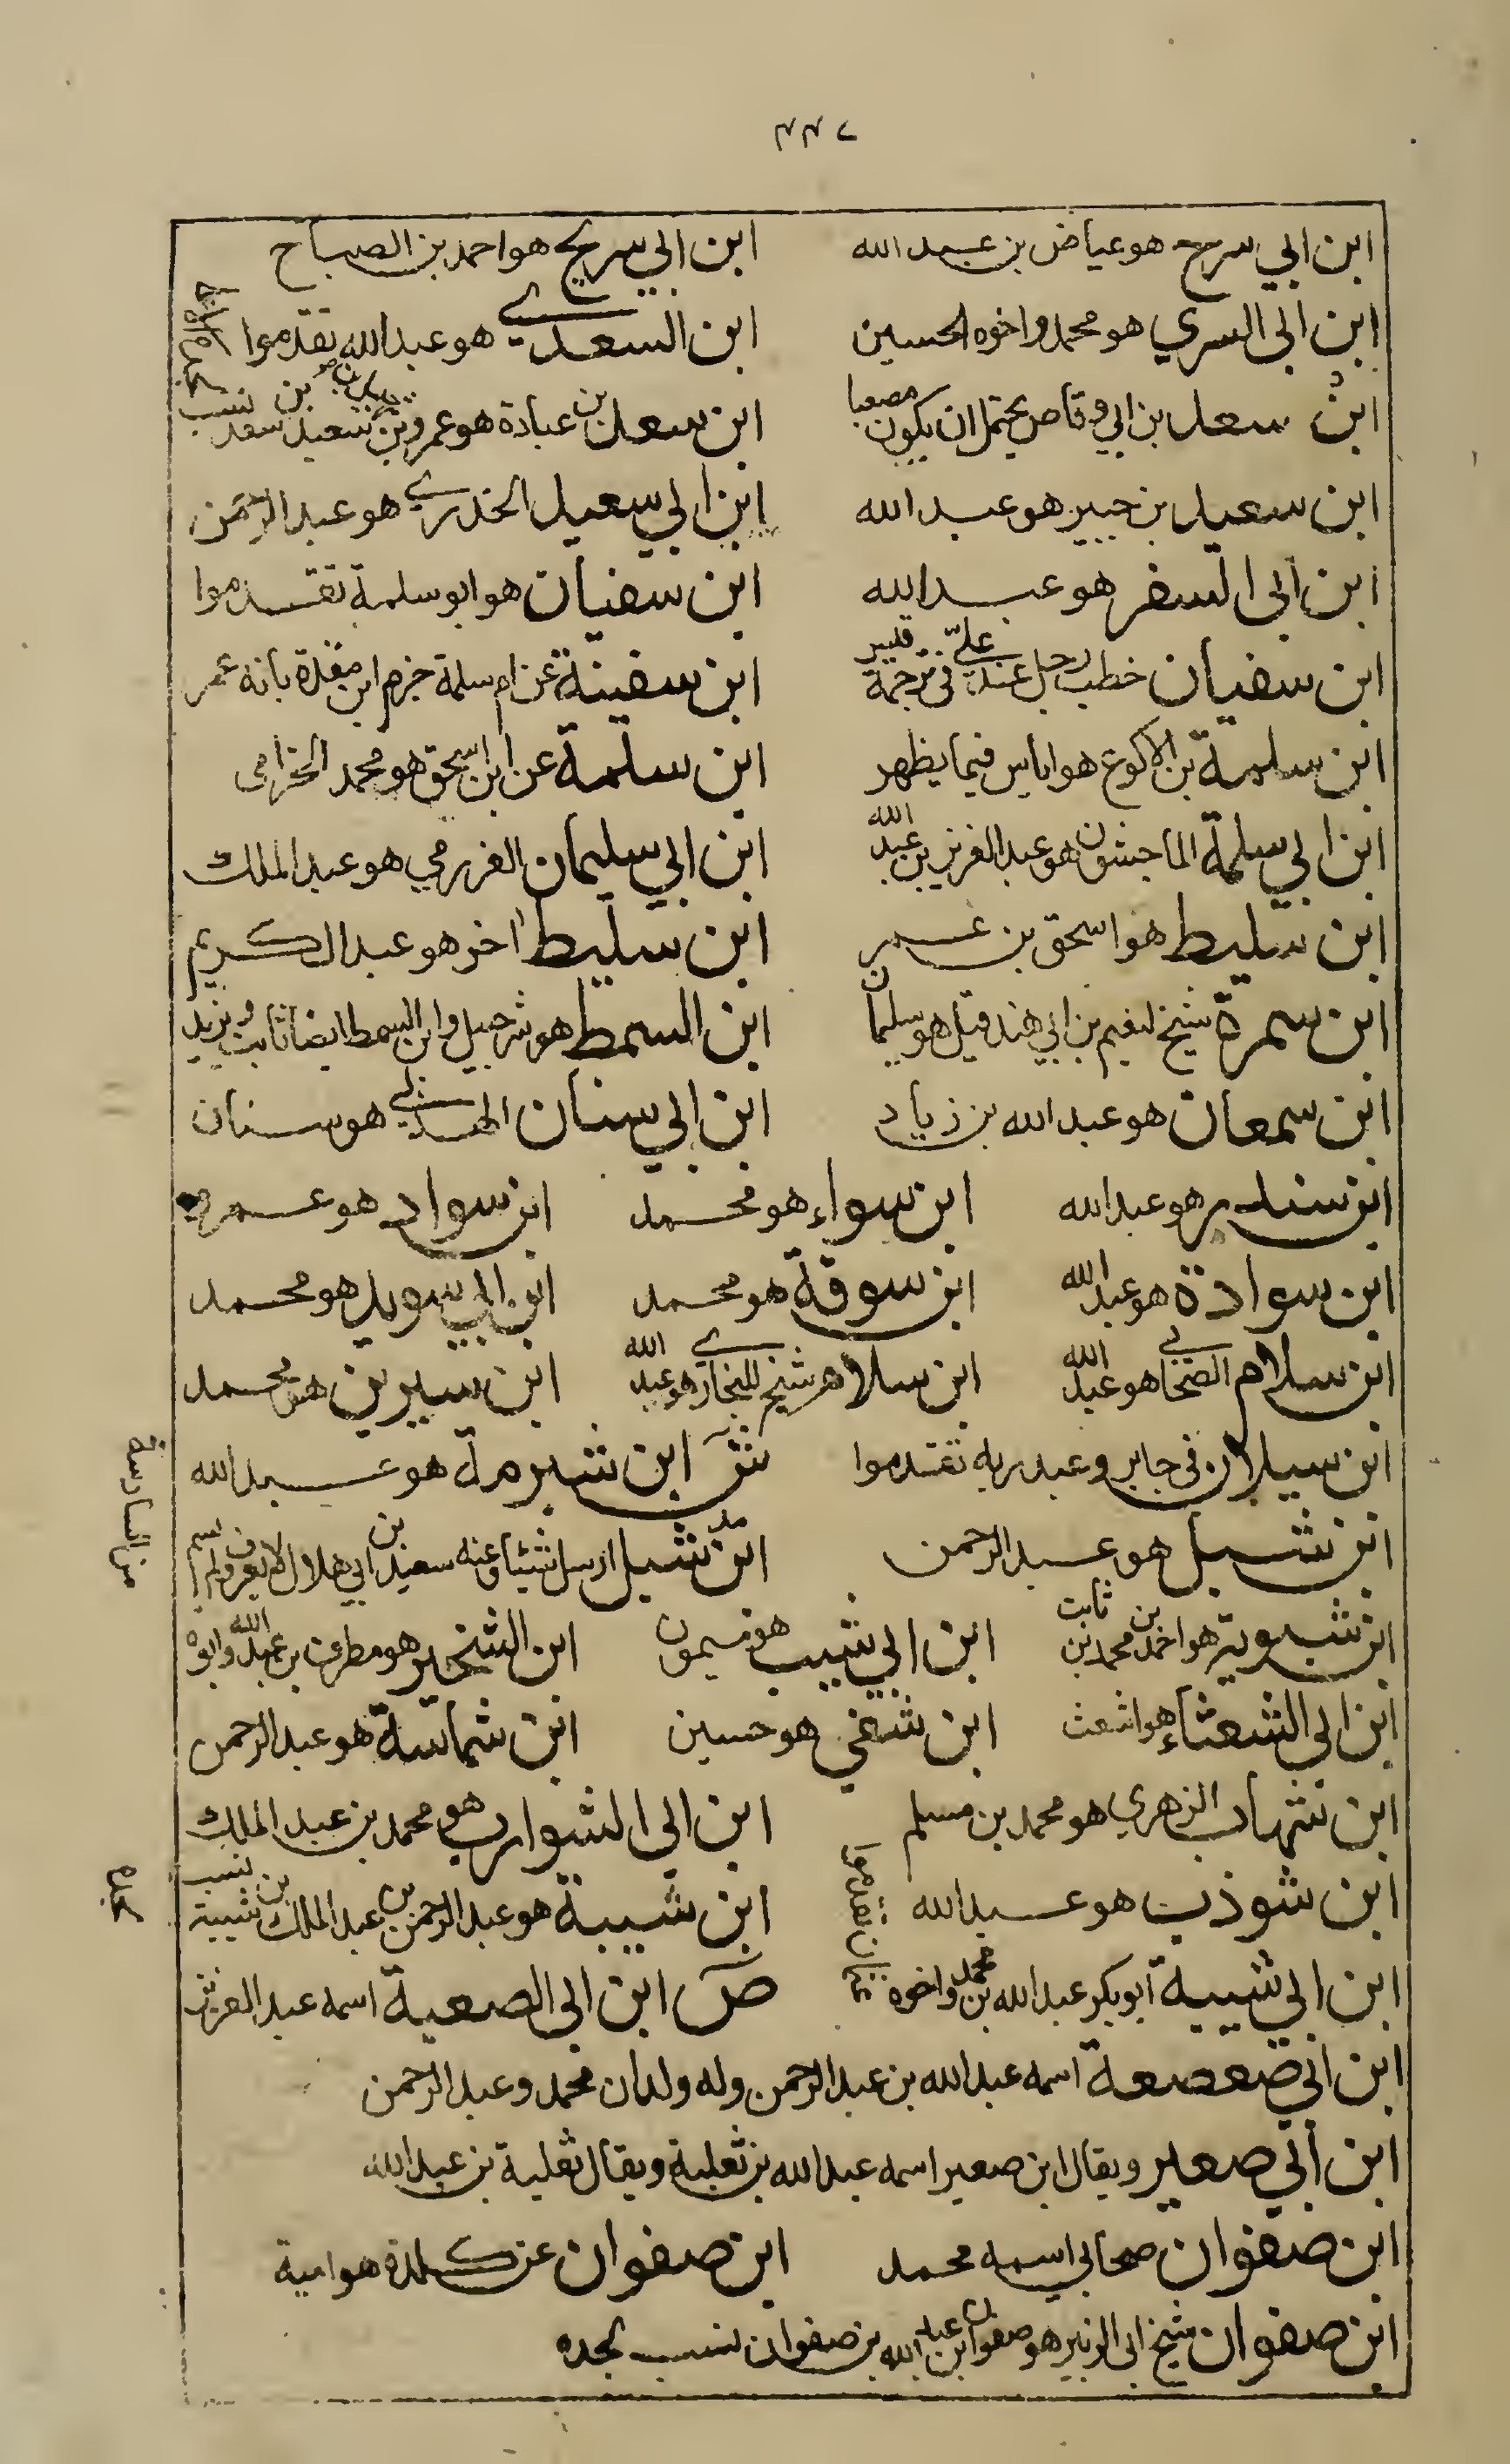 ٤٤٧
ابن ابي سرح هو عياض بن عبد الله ابن ابي سريج هو احمد بن الصباح
ابن ابى السري هو محمد واخوه الحسين ابن السعدي هو عبد الله تقدموا
ابن سعد بن ابي وقاص يحتمل ان يكون مصعبا ابن سعد بن عبادة هو عمرو بن سعيد بن سعد نسب
ابن سعيد بن جبير هو عبد الله ابن ابي سعيد الخدري هو عبد الرحمن
ابن ابى السفر هو عبد الله ابن سفيان هو ابو سلمة تقدموا
ابن سفيان خطب رجل عند علي في ترجمة قنبر ابن سفينة عن ام سلمة جزم ابن مندة بانه عمر
ابن سلمة بن الاكوع هو اياس فيما يظهر ابن سلمة عن ابن اسحق هو محمد الحزامي
ابن ابي سلمة الماجشون هو عبد العزيز بن عبد الله ابن ابي سليمان العزرمي هو عبد الملك
ابن سليط هو اسحق بن عمر ابن سليط اخر هو عبد الكريم
ابن سمرة شيخ لنعيم بن ابي هند قيل هو سليمان ابن السمط هو شرحبيل وابن السمط ايضا ثابت ويزيد
ابن سمعان هو عبد الله بن زياد ابن ابي سنان الهندي هو سنان
ابن سندر هو عبد الله ابن سواء هو محمد ابن سواد هو عمرو
ابن سوادة هو عبد الله ابن سوقة هو محمد ابن ابي سويد هو محمد
ابن سلام الصحابي هو عبد الله ابن سلام شيخ للبخاري هو عبد الله ابن سيرين هو محمد
ابن سيلان في جابر وعبد ربه تقدموا ش ابن شبرمة هو عبد الله
من السادسة
ابن شبل هو عبد الرحمن ابن شبل ارسل شيئا وعنه سعيد بن ابي هلال لا يعرف ولم اسم
ابن شبوية هو احمد بن محمد بن ثابت ابن ابي شبيب هو ميمون ابن الشخير هو مطرف بن عبد الله وابوه
ابن ابي الشعثاء هو اشعث ابن شفي هو حسين ابن شماسة هو عبد الرحمن
ابن شهاب الزهري هو محمد بن مسلم ابن ابى الشوارب هو محمد بن عبد الملك
ابن شوذب هو عبد الله ابن شيبة هو عبد الرحمن بن عبد الملك بن شيبة نسب
لجده
ابن ابي شيبة ابو بكر عبد الله بن محمد واخوه عثمان تقدموا ص ابن ابى الصعبة اسمه عبد العزيز
ابن ابي صعصعة اسمه عبد الله بن عبد الرحمن وله ولدان محمد وعبد الرحمن
ابن ابي صعير ويقال ابن صعير اسمه عبد الله بن ثعلبة ويقال ثعلبة بن عبد الله
ابن صفوان صحابي اسمه محمد ابن صفوان عن كلدة هو امية
ابن صفوان شيخ ابى الزبير هو صفوان بن عبد الله بن صفوان نسب لجده